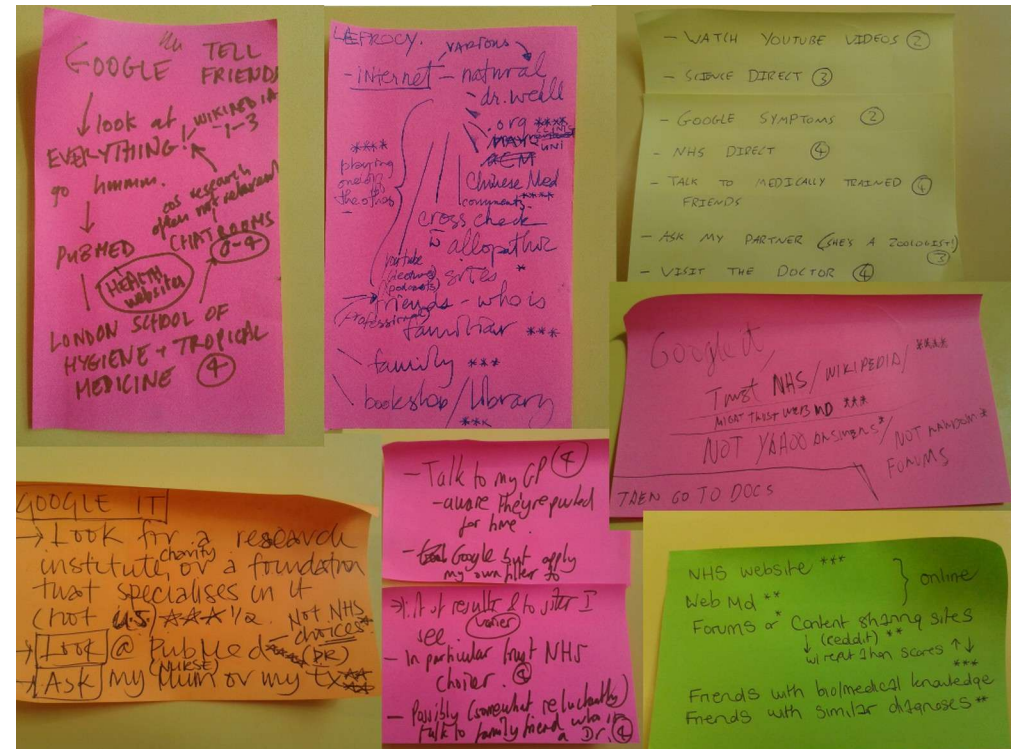 GOOGLE TELL
FRIENDS
look at
EVERYTHING!
WIKIPEDIA
1-3
go hmmm.
cos research
often not relevant
CHATROOMS
0-4
PUBMED
HEALTH
websites
LONDON SCHOOL OF
HYGIENE + TROPICAL
MEDICINE 4
LEPROCY.
VARIOUS
- INTERNET - natural
- dr. weill
.org ****
CLINIC
UNI
****
playing
one on
the other
Chinese Med
comments ****
cross check
to allopathic
sites *
youtube
(lectures)
(podcasts)
friends - who is
(Professional)
familiar ***
family ***
bookshop/library
***
- WATCH YOUTUBE VIDEOS 2
- SCIENCE DIRECT 3
- GOOGLE SYMPTOMS 2
- NHS DIRECT 4
- TALK TO MEDICALLY TRAINED 4
FRIENDS
- ASK MY PARTNER (SHE'S A ZOOLOGIST!)
3
- VISIT THE DOCTOR 4
Google it
Trust NHS/WIKIPEDIA/ ****
MIGHT TRUST WEB MD ***
NOT YAHOO ANSWERS*/NOT RANDOM*
FORUMS
THEN GO TO DOCS
GOOGLE IT
→ Look for a research
charity
institute or a foundation
that specialises in it
(not U.S) *** 1/2. Not NHS
choices.*
→ Look @ PubMed **** (DR)
(NURSE)
→ Ask my Mum or my
- Talk to my GP 4
- aware they're pushed
for time.
- Google but apply
my own filter to
list of results & to sites I
see. varies
- In particular trust NHS
choices. 4
- Possibly (somewhat reluctantly)
talk to family friend who is
a Dr. 4
NHS website ***
Web Md **
} online
Forums or * Content sharing sites
↓ (reddit) **
w/ reputation scores ↑↓
***
Friends with bio/medical knowledge
Friends with similar diagnoses **